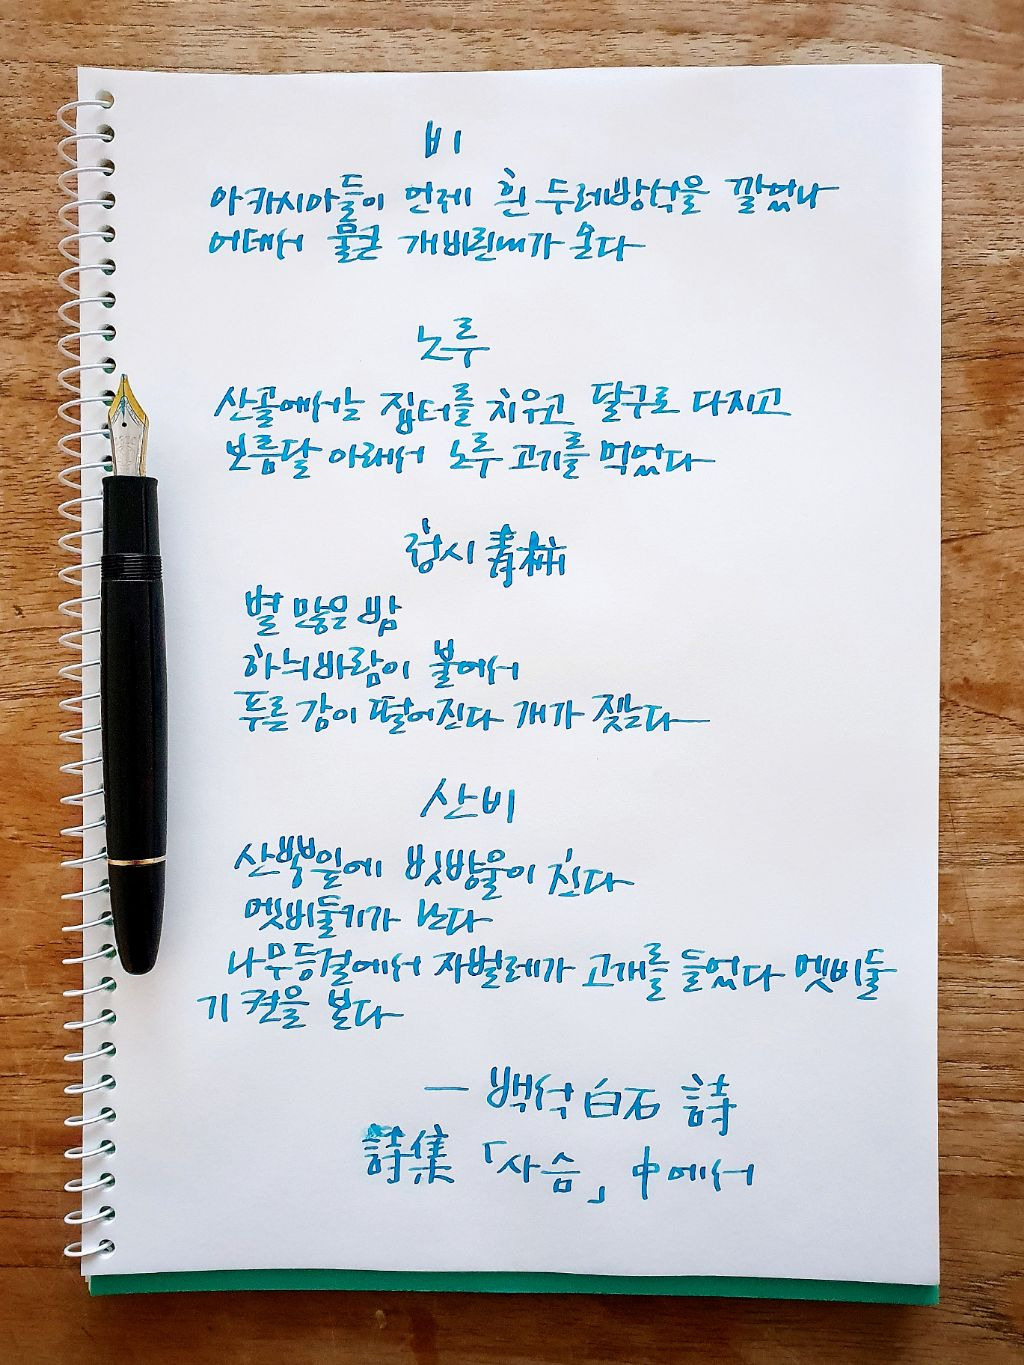 비
아카시아들이 언제 흰 두레방석을 깔었나
어데서 물쿤 개비린내가 온다
노루
산골에서는 집터를 치우고 달구로 다지고
보름달 아래서 노루 고기를 먹었다
청시 靑柿
별 많은 밤
하늬바람이 불어서
푸른 감이 떨어진다 개가 짖는다
산비
산뽕잎에 빗방울이 친다
멧비둘기가 난다
나무등걸에서 자벌레가 고개를 들었다 멧비둘
기 켠을 본다
— 백석 白石 詩
詩集 「사슴」 中에서